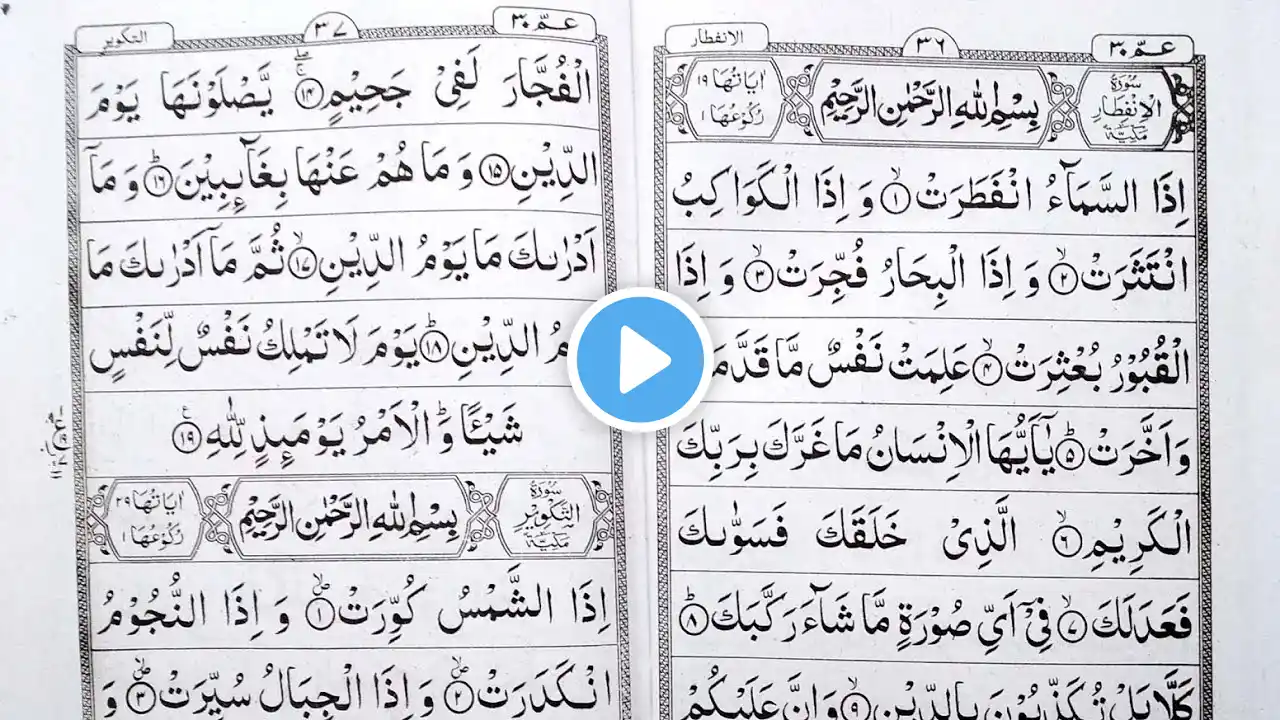 الانفطار
٣٦
عـمّ ٣٠
سُوْرَةُ الْاِنْفِطَارِ مَكِّيَّةٌ
بِسْمِ اللّٰهِ الرَّحْمٰنِ الرَّحِيْمِ
اٰيَاتُهَا ١٩
رُكُوْعُهَا ١
اِذَا السَّمَآءُ انْفَطَرَتْ ۙ﴿١﴾ وَ اِذَا الْكَوَاكِبُ
انْتَثَرَتْ ۙ﴿٢﴾ وَ اِذَا الْبِحَارُ فُجِّرَتْ ۙ﴿٣﴾ وَ اِذَا
الْقُبُوْرُ بُعْثِرَتْ ۙ﴿٤﴾ عَلِمَتْ نَفْسٌ مَّا قَدَّمَ
وَ اَخَّرَتْ ؕ﴿٥﴾ يٰۤاَيُّهَا الْاِنْسَانُ مَا غَرَّكَ بِرَبِّكَ
الْكَرِيْمِ ۙ﴿٦﴾ الَّذِىْ خَلَقَكَ فَسَوّٰىكَ
فَعَدَلَكَ ۙ﴿٧﴾ فِىْۤ اَىِّ صُوْرَةٍ مَّا شَآءَ رَكَّبَكَ ؕ﴿٨﴾
كَلَّا بَلْ تُكَذِّبُوْنَ بِالدِّيْنِ ۙ﴿٩﴾ وَ اِنَّ عَلَيْكُمْ
التكوير
٣٧
عـمّ ٣٠
الْفُجَّارَ لَفِىْ جَحِيْمٍ ۚۖ﴿١٤﴾ يَّصْلَوْنَهَا يَوْمَ
الدِّيْنِ ﴿١٥﴾ وَ مَا هُمْ عَنْهَا بِغَآٮِٕبِيْنَ ؕ﴿١٦﴾ وَ مَاۤ
اَدْرٰىكَ مَا يَوْمُ الدِّيْنِ ۙ﴿١٧﴾ ثُمَّ مَاۤ اَدْرٰىكَ مَا
مُ الدِّيْنِ ؕ﴿١٨﴾ يَوْمَ لَا تَمْلِكُ نَفْسٌ لِّنَفْسٍ
شَيْـًٔا ؕ وَ الْاَمْرُ يَوْمَٮِٕذٍ لِّلّٰهِ ﴿١٩﴾
سُوْرَةُ التَّكْوِيْرِ مَكِّيَّةٌ
بِسْمِ اللّٰهِ الرَّحْمٰنِ الرَّحِيْمِ
اٰيَاتُهَا ٢٩
رُكُوْعُهَا ١
اِذَا الشَّمْسُ كُوِّرَتْ ۙ﴿١﴾ وَ اِذَا النُّجُوْمُ
انْكَدَرَتْ ۙ﴿٢﴾ وَ اِذَا الْجِبَالُ سُيِّرَتْ ۙ﴿٣﴾ وَ